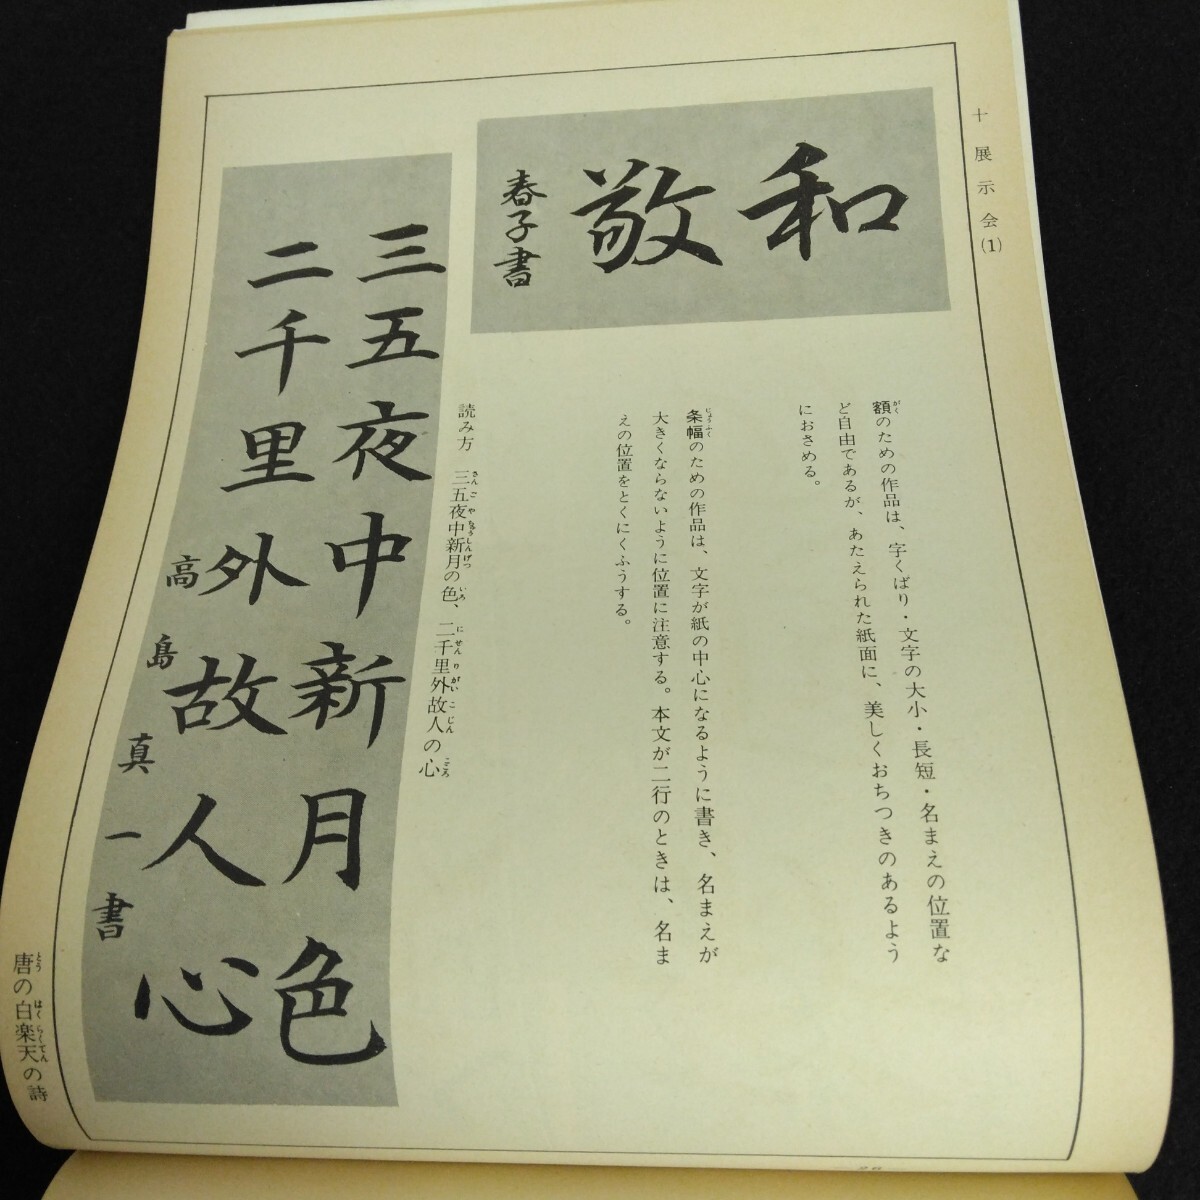 十 展示会(1)
和敬
春子書
額のための作品は、字くばり・文字の大小・長短・名まえの位置な
ど自由であるが、あたえられた紙面に、美しくおちつきのあるよう
におさめる。
条幅のための作品は、文字が紙の中心になるように書き、名まえが
大きくならないように位置に注意する。本文が二行のときは、名ま
えの位置をとくにくふうする。
読み方 三五夜中新月の色、二千里外故人の心
三五夜中新月色
二千里外故人心
高島真一書
唐の白楽天の詩